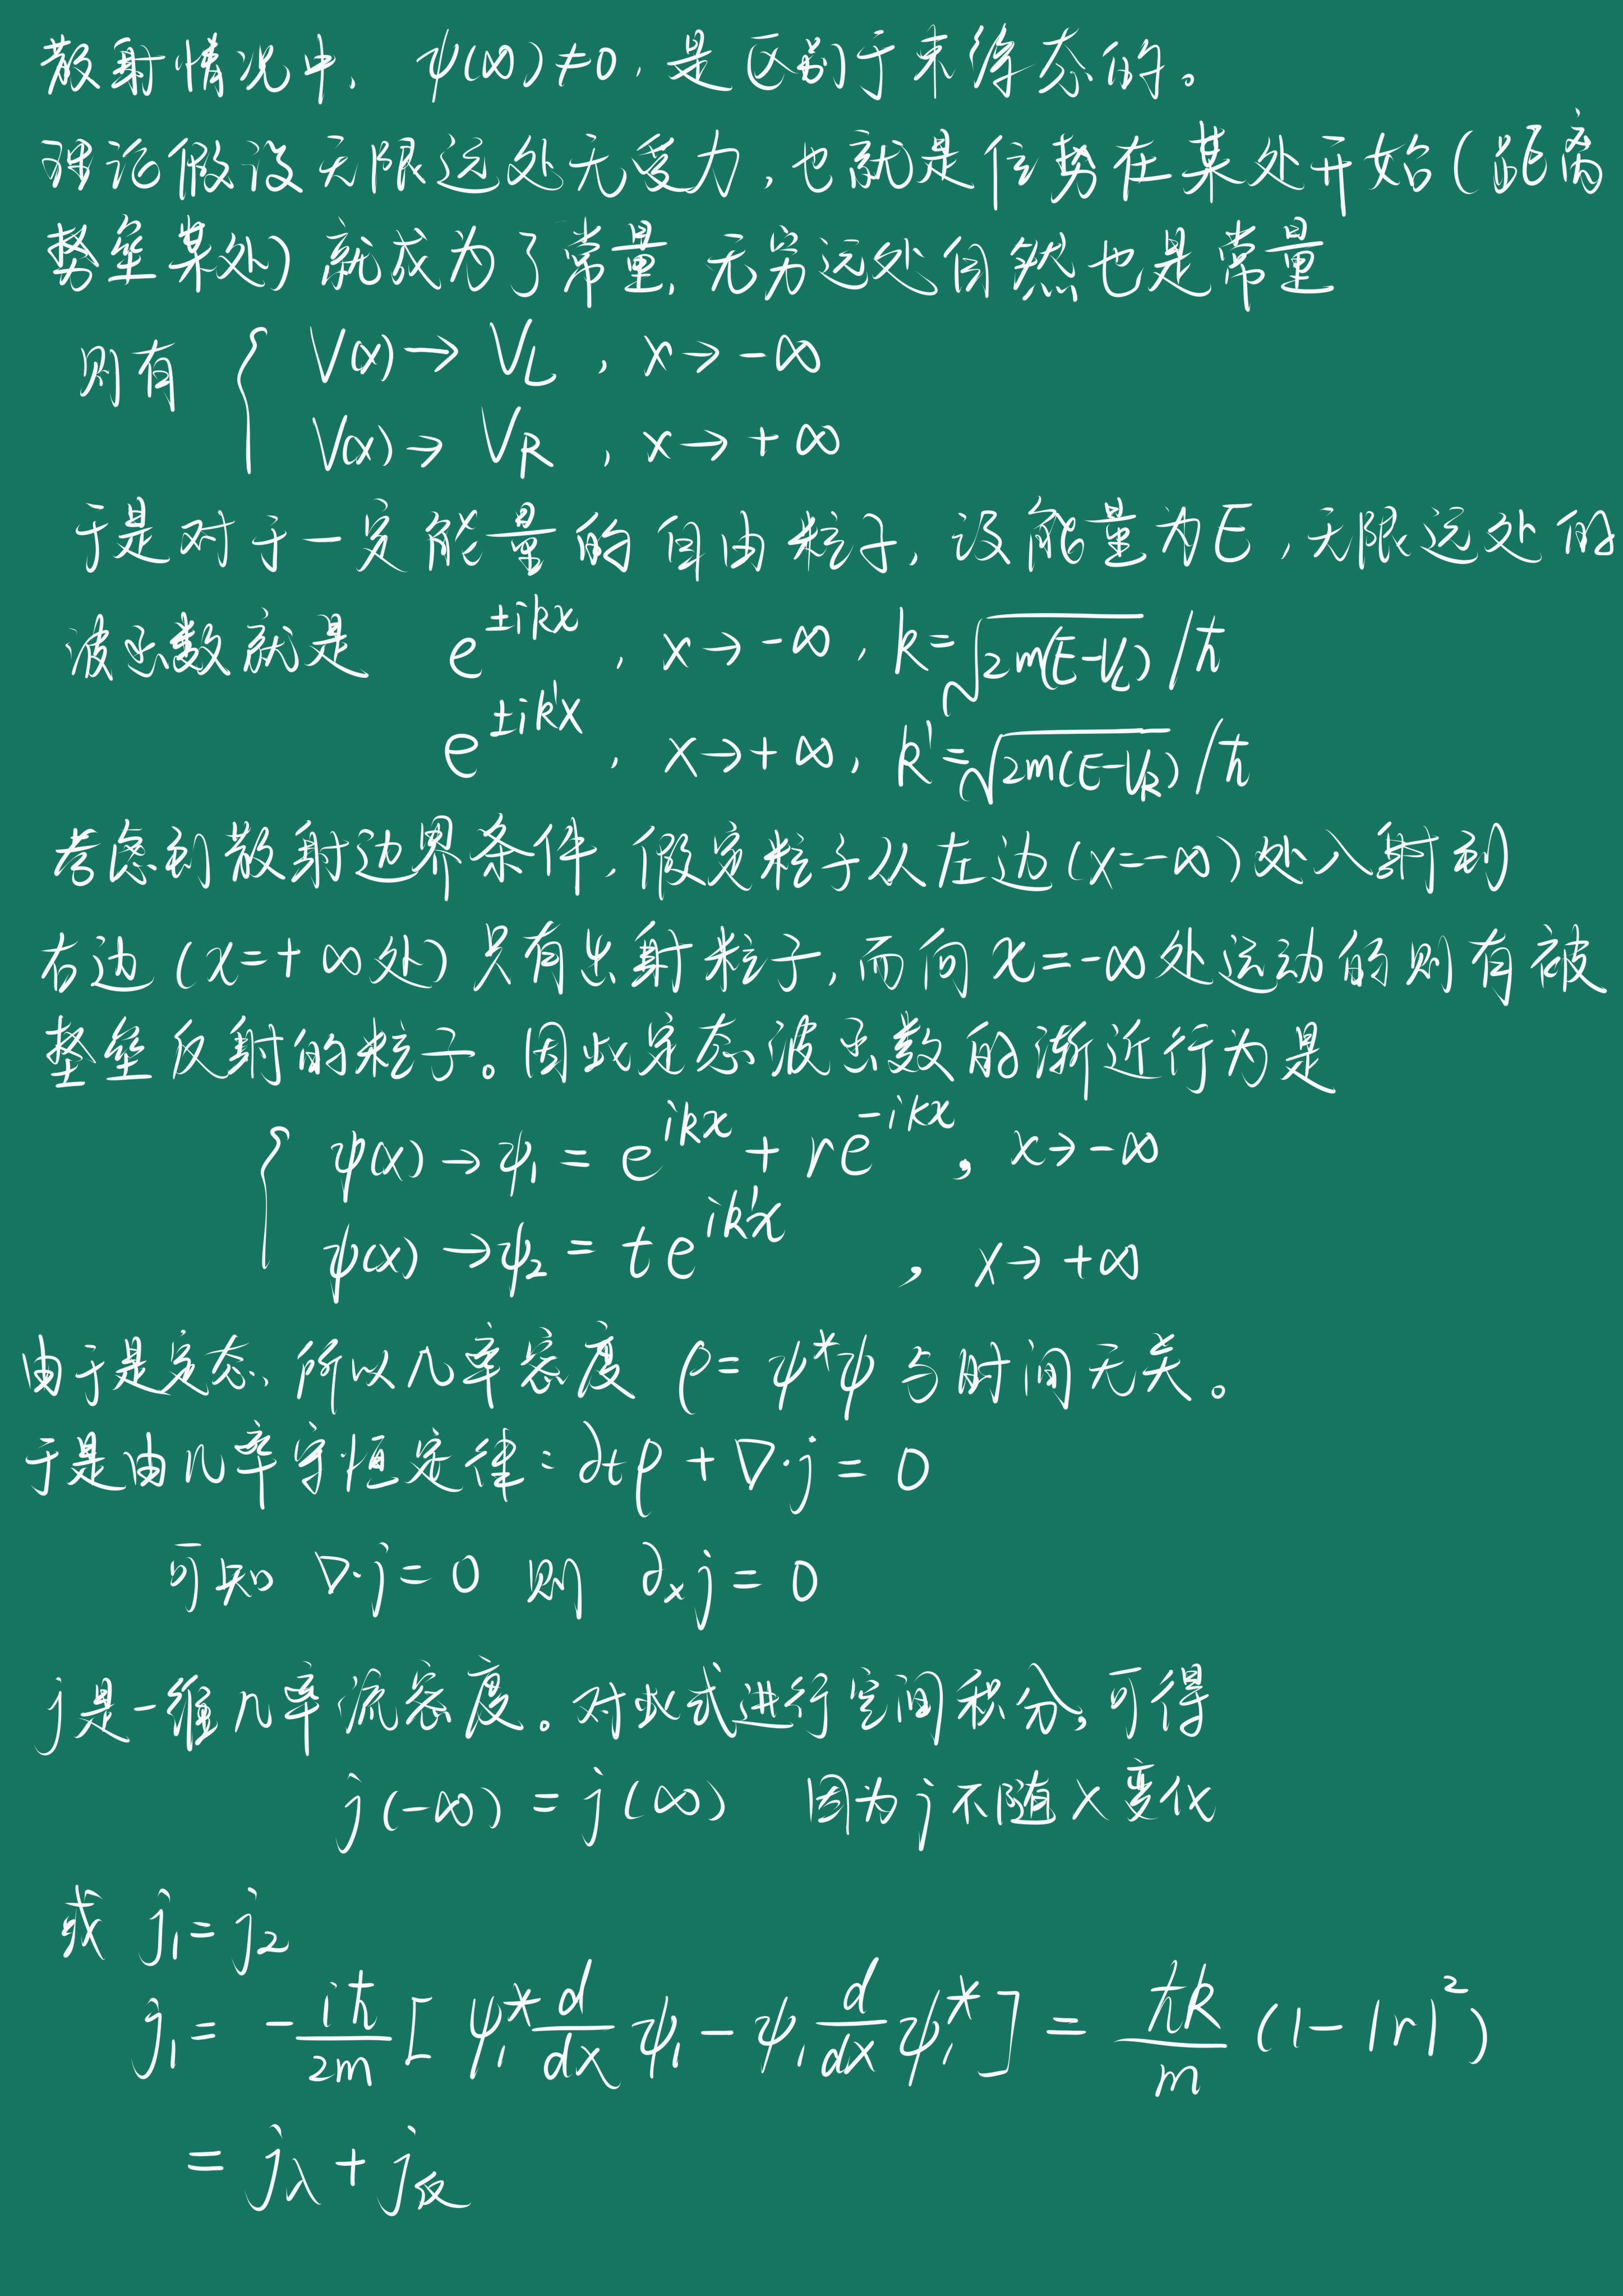 散射情况中, ψ(∞)≠0, 是区别于束缚态的。
理论假设无限远处无受力,也就是位势在某处开始(距离
势垒某处)就成为了常量,无穷远处自然也是常量
则有 { V(x)→V_L , x→-∞
V(x)→V_R , x→+∞
于是对于一定能量的自由粒子,设能量为E,无限远处的
波函数就是 e^{±ikx}, x→-∞, k=√(2m(E-V_L))/ħ
e^{±ik'x}, x→+∞, k'=√(2m(E-V_R))/ħ
考虑到散射边界条件,假定粒子从左边(x=-∞)处入射到
右边(x=+∞处)只有出射粒子,而向x=-∞处运动的则有被
势垒反射的粒子。因此定态波函数的渐近行为是
{ ψ(x)→ψ₁ = e^{ikx} + re^{-ikx}, x→-∞
ψ(x)→ψ₂ = te^{ik'x} , x→+∞
由于是定态、所以几率密度 ρ=ψ*ψ 与时间无关。
于是由几率守恒定律: ∂tρ + ∇·j = 0
可知 ∇·j = 0 则 ∂ₓj = 0
j是一维几率流密度。对此式进行空间积分,可得
j(-∞) = j(∞) 因为j不随x变化
或 j₁=j₂
j₁ = -iħ/2m [ψ₁* d/dx ψ₁ - ψ₁ d/dx ψ₁*] = ħk/m (1-|r|²)
= j入 + j反